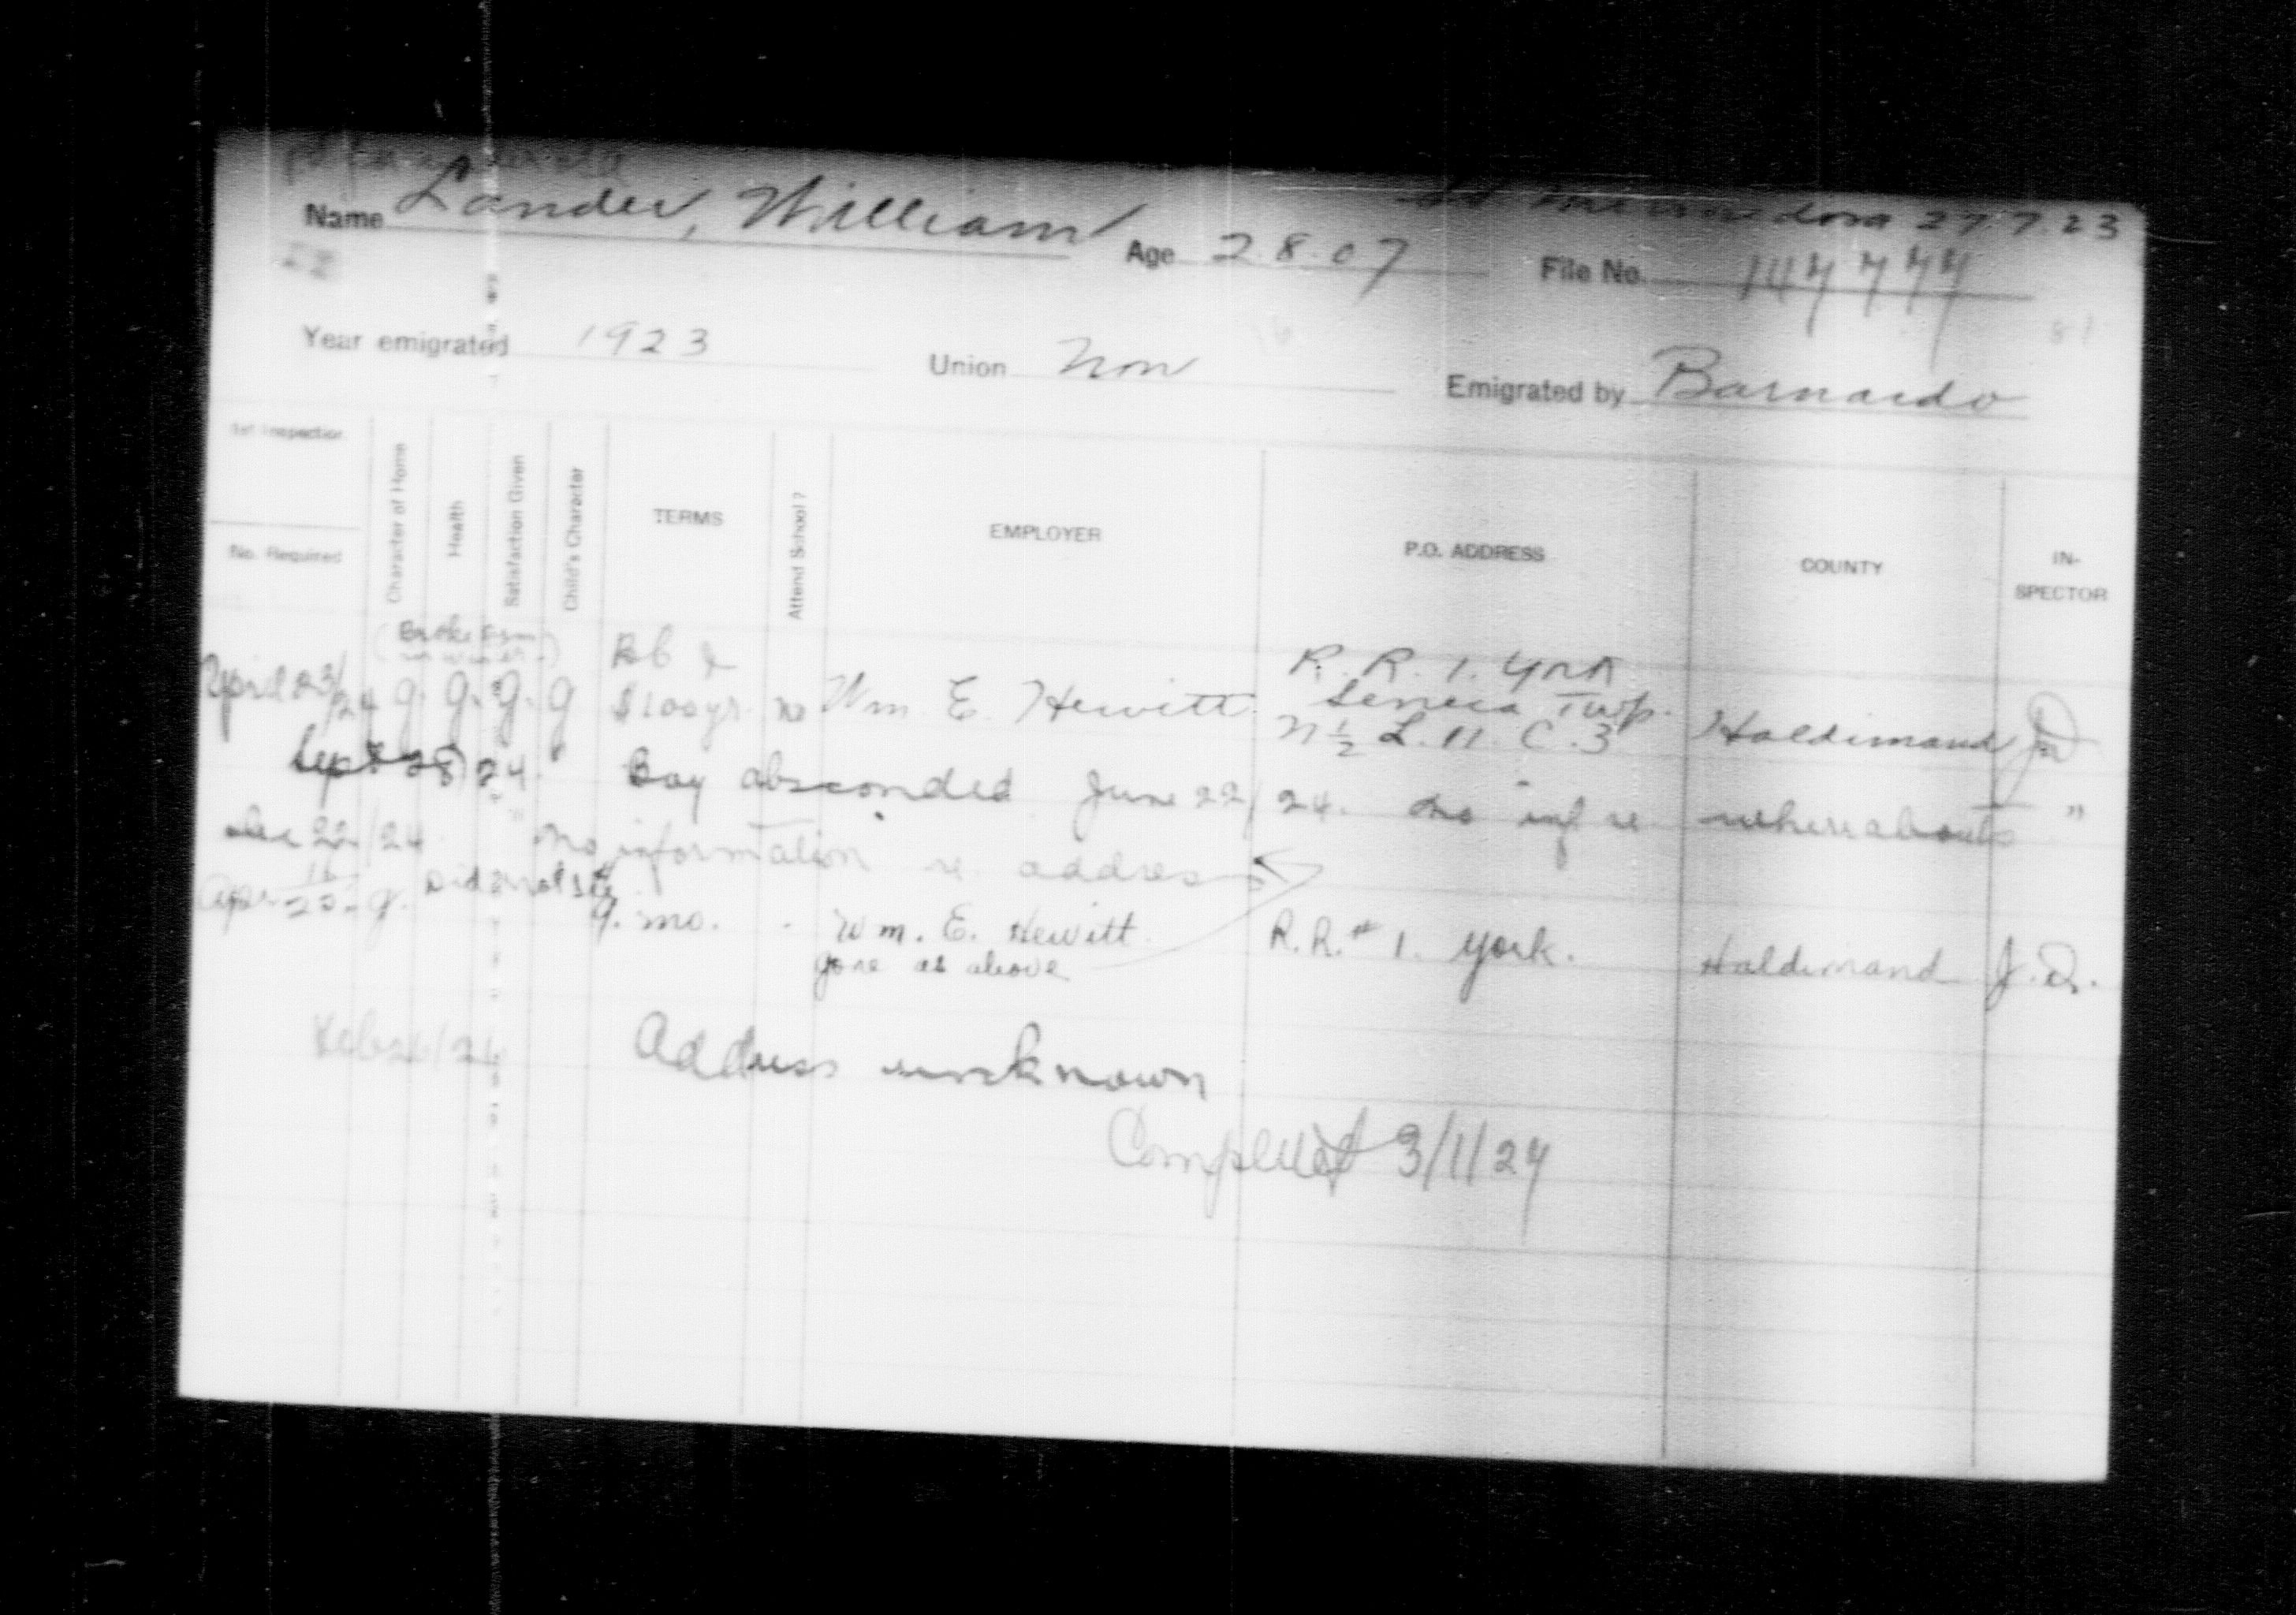 Name Lander, William Age 2.8.07 27.7.23
File No. 147774
Year emigrated 1923 Union Non Emigrated by Barnardo
1st Inspection
No. Required
Character of Home
Health
Satisfaction Given
Child's Character
TERMS
Attend School?
EMPLOYER
P.O. ADDRESS
COUNTY
IN-
SPECTOR
R.R. 1. York
April 23/24 g. g. g. g $100 yr. no Wm. E. Hewitt Seneca Twp. Haldimand
N ½ L. 11. C. 3
Sept 24 Boy absconded June 22/24. no inf re whereabouts "
Dec 22/24 no information re address
Apr 16/25 g. Did not see
g. mo. Wm. E. Hewitt R.R. # 1. York. Haldimand J.D.
gone as above
Feb 26/26 Address unknown
Completed 3/1/27